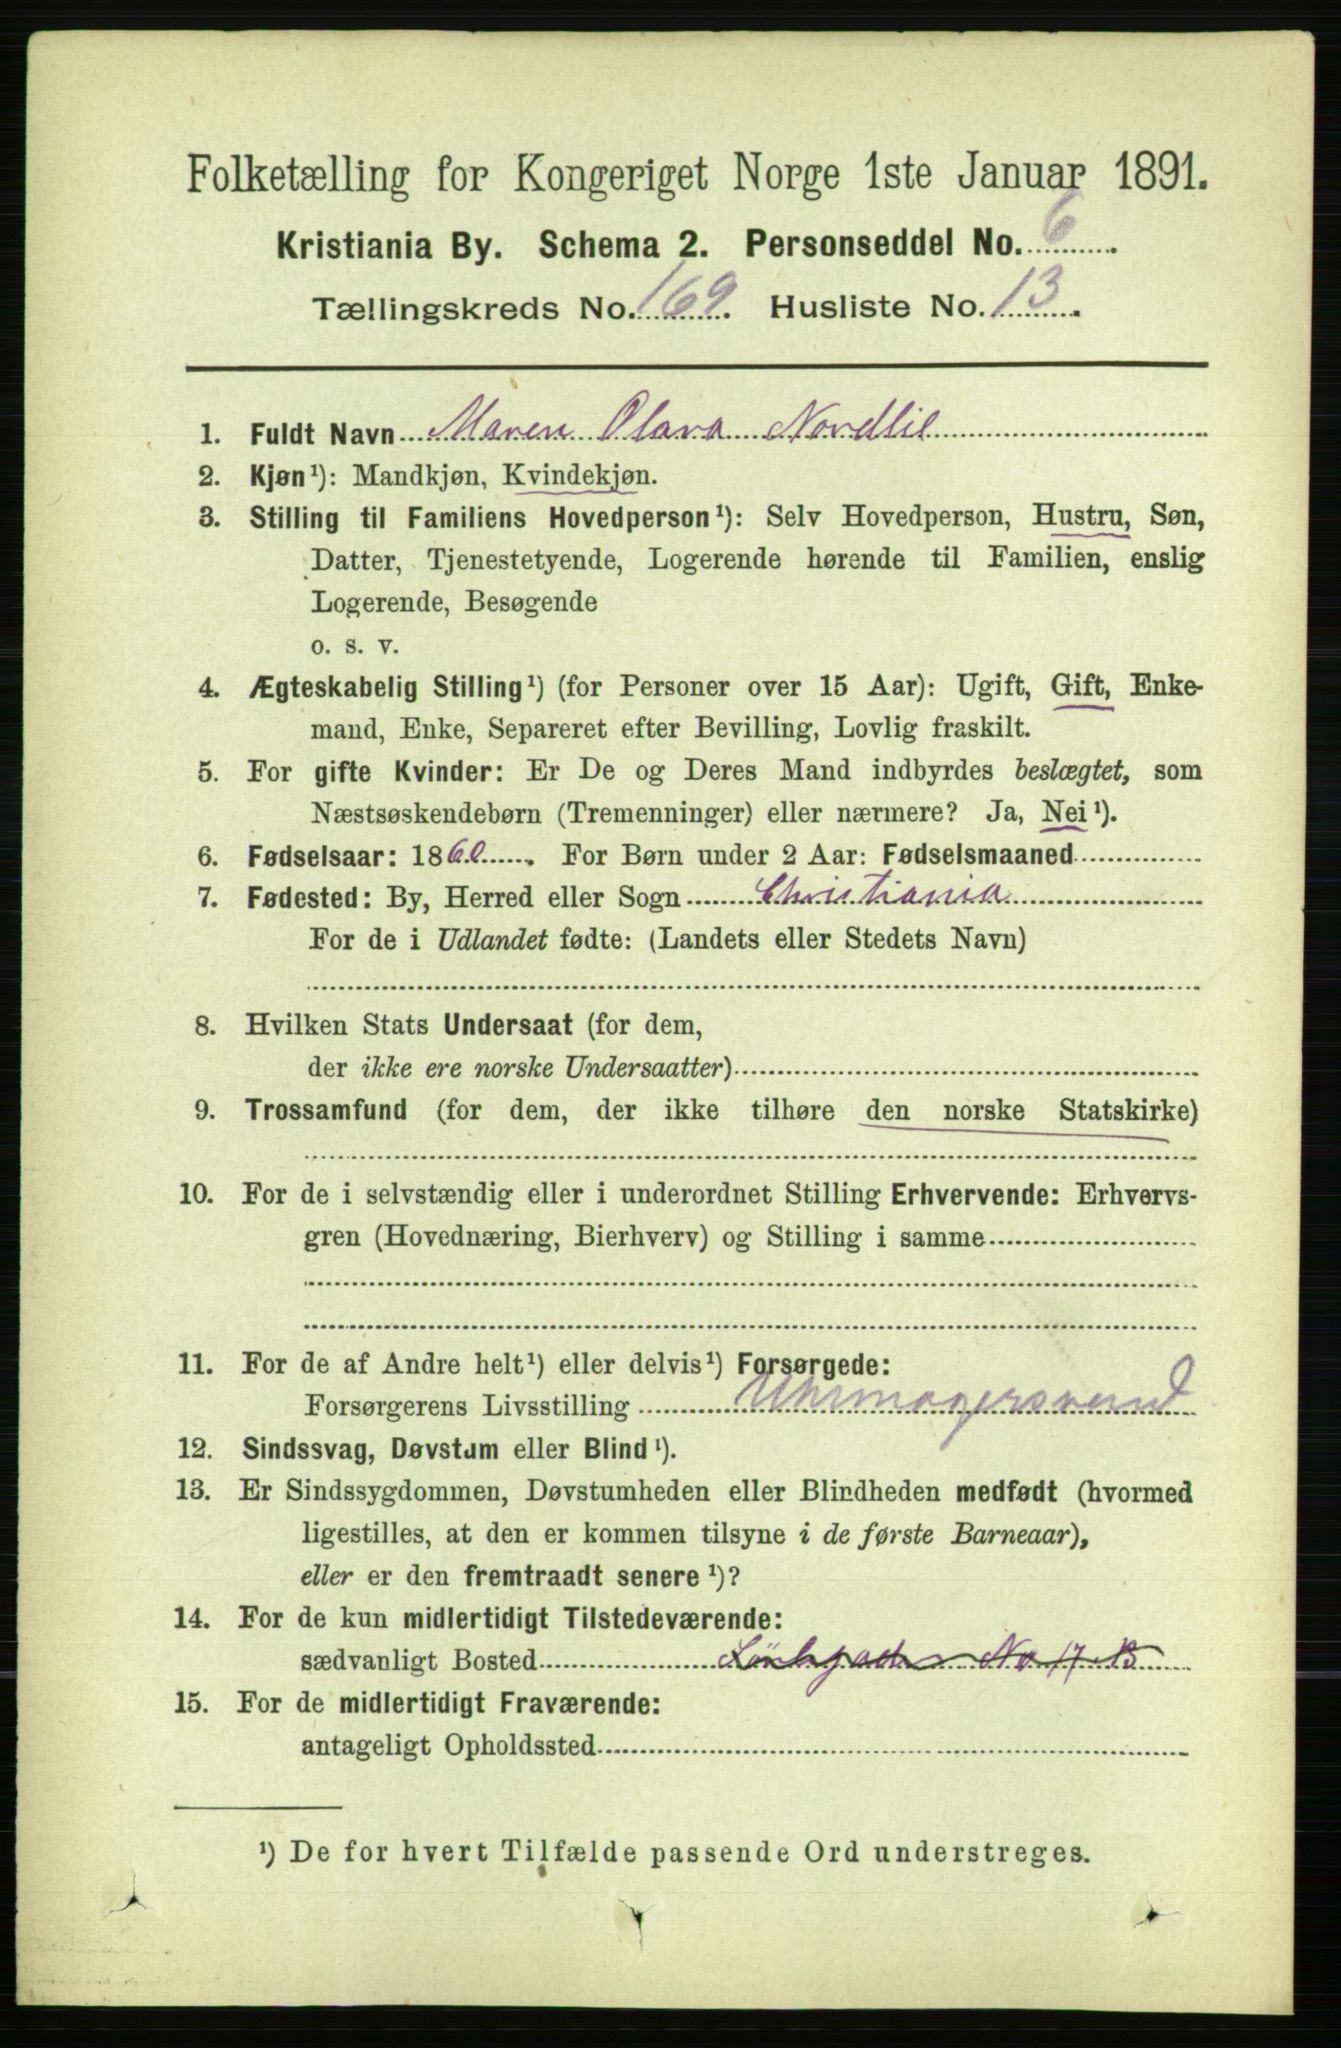 Folketælling for Kongeriget Norge 1ste Januar 1891.
Kristiania By. Schema 2. Personseddel No. 6.
Tællingskreds No. 169. Husliste No. 13.
1. Fuldt Navn Maren Olava Nordlie
2. Kjøn¹): Mandkjøn, Kvindekjøn.
3. Stilling til Familiens Hovedperson¹): Selv Hovedperson, Hustru, Søn,
Datter, Tjenestetyende, Logerende hørende til Familien, enslig
Logerende, Besøgende
o. s. v.
4. Ægteskabelig Stilling¹) (for Personer over 15 Aar): Ugift, Gift, Enke-
mand, Enke, Separeret efter Bevilling, Lovlig fraskilt.
5. For gifte Kvinder: Er De og Deres Mand indbyrdes beslægtet, som
Næstsøskendebørn (Tremenninger) eller nærmere? Ja, Nei¹).
6. Fødselsaar: 1860. For Børn under 2 Aar: Fødselsmaaned
7. Fødested: By, Herred eller Sogn Christiania
For de i Udlandet fødte: (Landets eller Stedets Navn)
8. Hvilken Stats Undersaat (for dem,
der ikke ere norske Undersaatter)
9. Trossamfund (for dem, der ikke tilhøre den norske Statskirke)
10. For de i selvstændig eller i underordnet Stilling Erhvervende: Erhvervs-
gren (Hovednæring, Bierhverv) og Stilling i samme
11. For de af Andre helt¹) eller delvis¹) Forsørgede:
Forsørgerens Livsstilling Uhrmagersvend
12. Sindssvag, Døvstum eller Blind¹).
13. Er Sindssygdommen, Døvstumheden eller Blindheden medfødt (hvormed
ligestilles, at den er kommen tilsyne i de første Barneaar),
eller er den fremtraadt senere¹)?
14. For de kun midlertidigt Tilstedeværende:
sædvanligt Bosted No 17 B
15. For de midlertidigt Fraværende:
antageligt Opholdssted
¹) De for hvert Tilfælde passende Ord understreges.